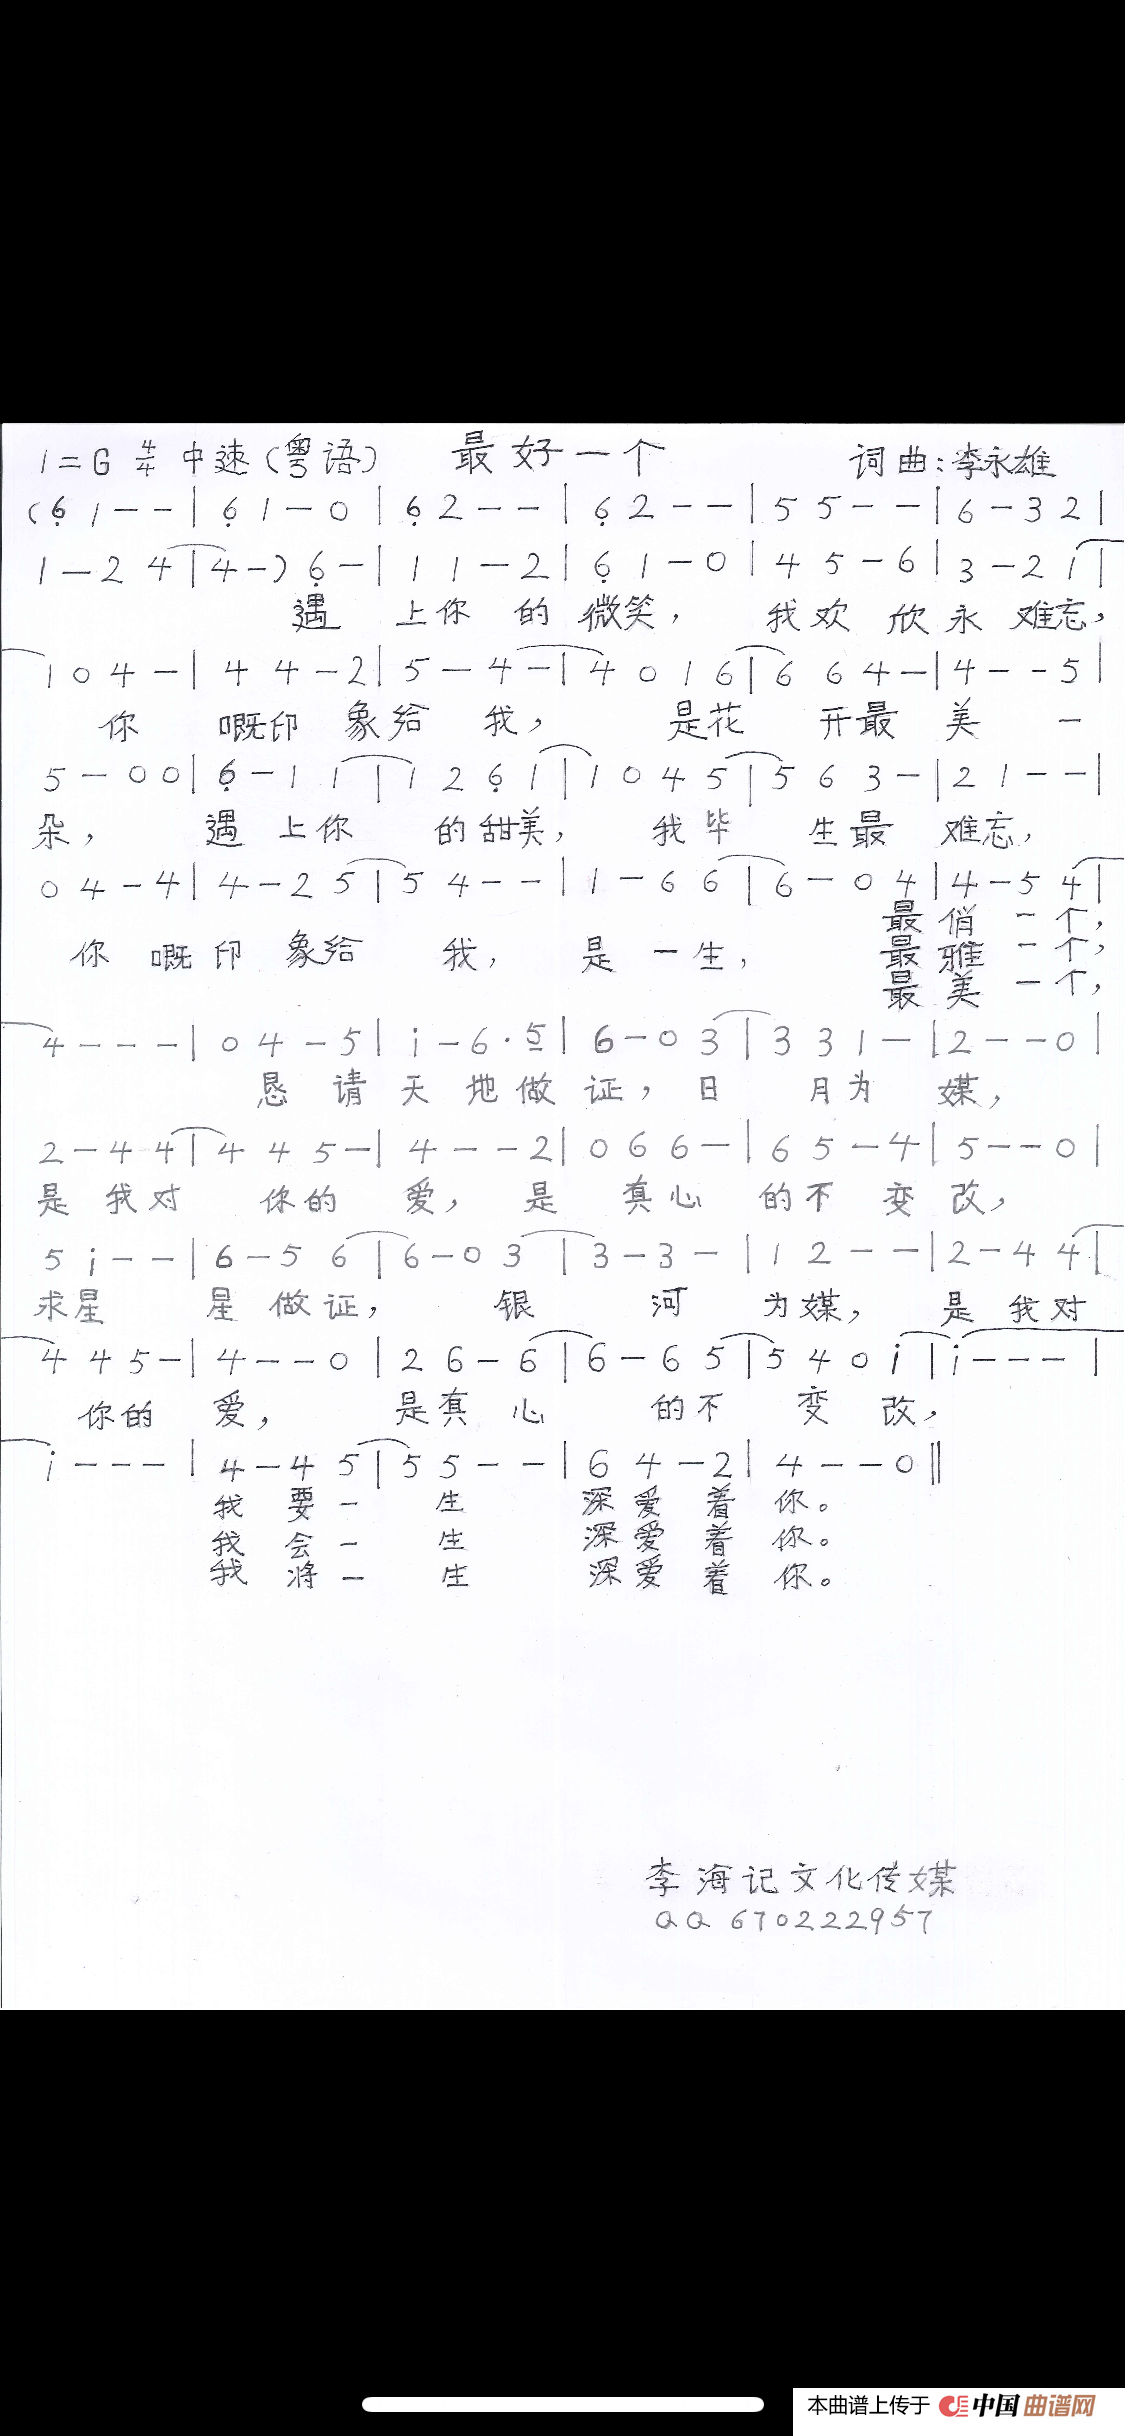 1=G 4/4 中速(粤语) 最好一个 词曲:李永雄
(6̣ 1 - - | 6̣ 1 - 0 | 6̣ 2 - - | 6̣ 2 - - | 5 5 - - | 6 - 3 2 |
1 - 2 4 | 4 - ) 6̣ - | 1 1 - 2 | 6̣ 1 - 0 | 4 5 - 6 | 3 - 2 1 |
遇 上你 的 微笑, 我欢 欣 永 难忘,
1 0 4 - | 4 4 - 2 | 5 - 4 - | 4 0 1 6 | 6 6 4 - | 4 - - 5 |
你 嘅印 象给 我, 是花 开最 美 一
5 - 0 0 | 6̣ - 1 1 | 1 2 6̣ 1 | 1 0 4 5 | 5 6 3 - | 2 1 - - |
朵, 遇 上你 的甜美, 我毕 生最 难忘,
0 4 - 4 | 4 - 2 5 | 5 4 - - | 1 - 6 6 | 6 - 0 4 | 4 - 5 4 |
最 俏 一 个,
你 嘅 印 象给 我, 是 一 生, 最 雅 一 个,
最 美 一 个,
4 - - - | 0 4 - 5 | i - 6 · 5̲ | 6 - 0 3 | 3 3 1 - | 2 - - 0 |
恳 请 天 地 做 证, 日 月为 媒,
2 - 4 4 | 4 4 5 - | 4 - - 2 | 0 6 6 - | 6 5 - 4 | 5 - - 0 |
是 我对 你的 爱, 是 真心 的不 变 改,
5 i - - | 6 - 5 6 | 6 - 0 3 | 3 - 3 - | 1 2 - - | 2 - 4 4 |
求星 星 做 证, 银 河 为媒, 是 我对
4 4 5 - | 4 - - 0 | 2 6 - 6 | 6 - 6 5 | 5 4 0 i | i - - - |
你的 爱, 是真 心 的不 变 改,
i - - - | 4 - 4 5 | 5 5 - - | 6 4 - 2 | 4 - - 0 ‖
我 要 一 生 深 爱 着 你。
我 会 一 生 深 爱 着 你。
我 将 一 生 深 爱 着 你。
李海记文化传媒
QQ 670222957
本曲谱上传于 中国曲谱网